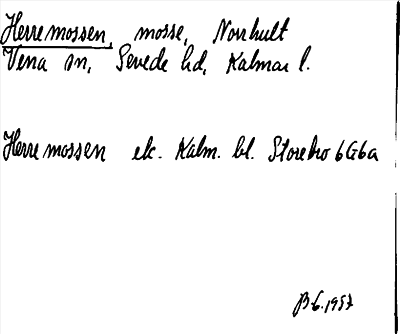 Herremossen, mosse, Norrhult
Vena sn, Sevede hd, Kalmar l.
Herremossen ek. Kalm. bl. Storebro 6G6a
1957